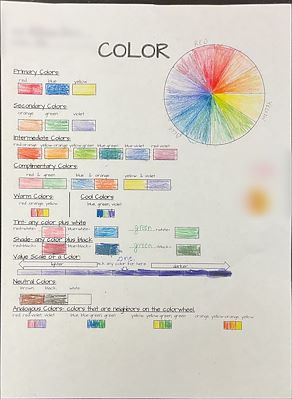 COLOR
RED
YELLOW
BLUE
Primary Colors:
red blue yellow
Secondary Colors:
orange green violet
Intermediate Colors:
red-orange yellow-orange yellow-green blue-green blue-violet red-violet
Complimentary Colors:
red & green blue & orange yellow & violet
Warm Colors: Cool Colors
red, orange, yellow blue, green, violet
Tint- any color plus white
red+white= blue+white= green +white=
Shade- any color plus black
red+black= blue+black= green +black=
Value Scale of a Color:
lighter pick any color for here darker
Neutral Colors:
brown black white
Analogous Colors- colors that are neighbors on the colorwheel.
red, red-violet, violet blue, blue-green, green yellow, yellow-green, green orange, yellow-orange, yellow